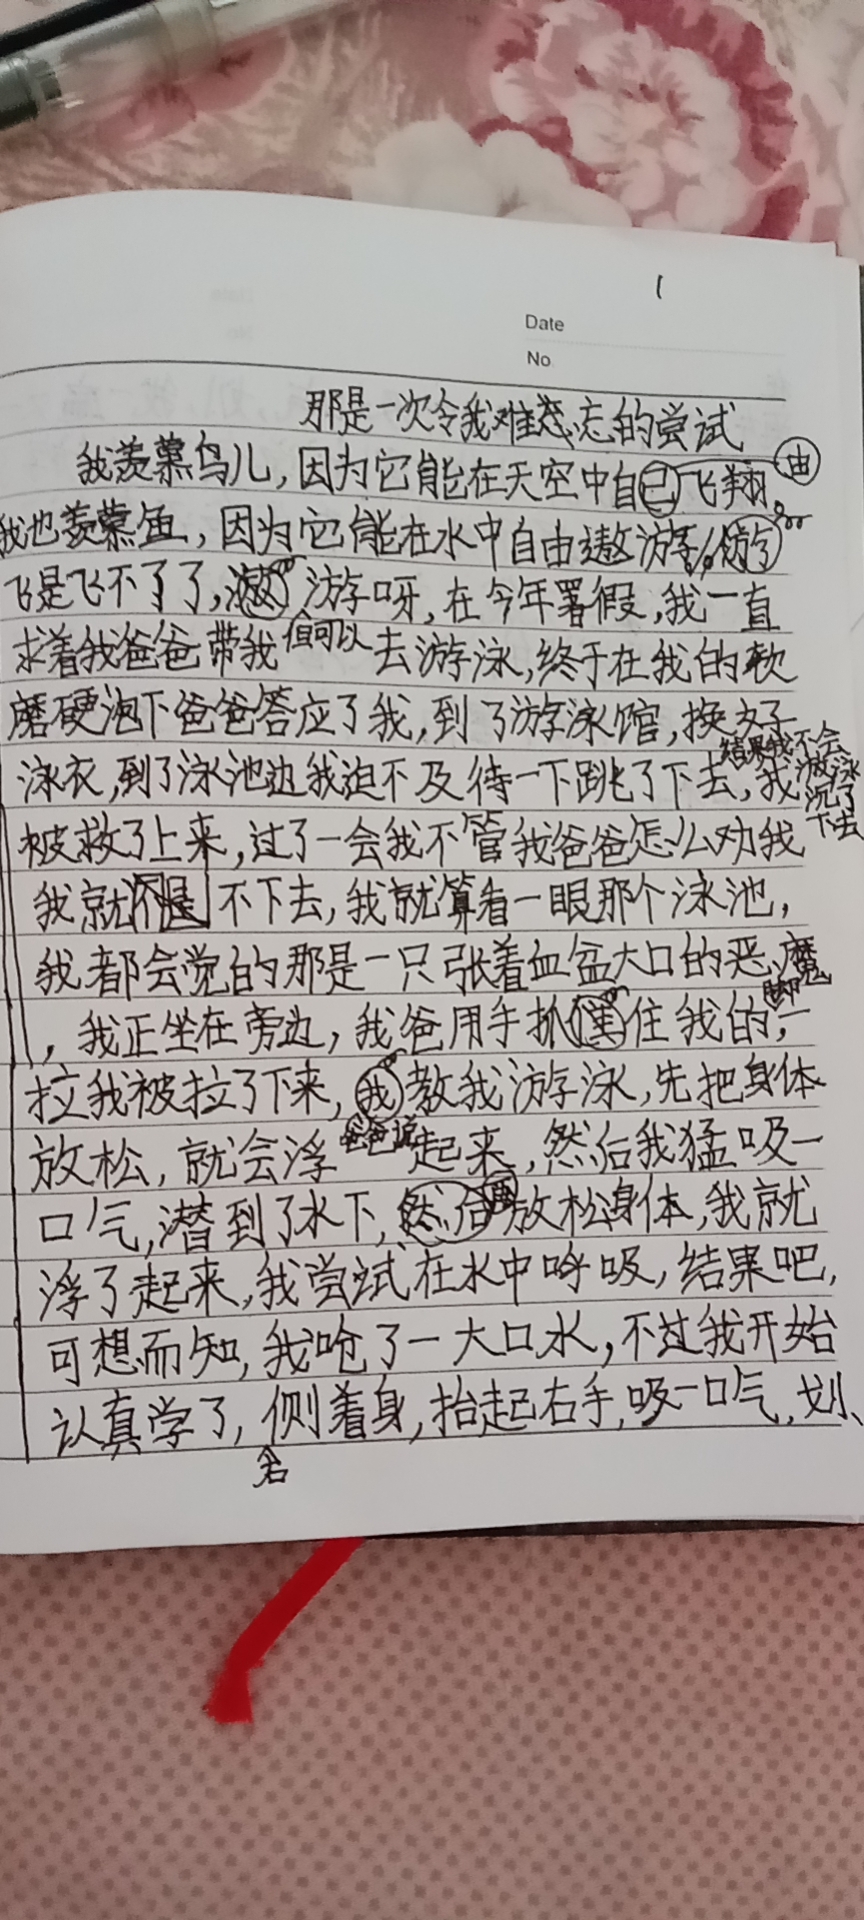 1
Date
No.
那是一次令我难忘的尝试
我羡慕鸟儿，因为它能在天空中自由飞翔。
我也羡慕鱼，因为它能在水中自由遨游，
飞是飞不了了，但可以游呀，在今年署假，我一直
求着我爸爸带我去游泳，终于在我的软
磨硬泡下爸爸答应了我，到了游泳馆，换好
泳衣，到了泳池边我迫不及待一下跳了下去，结果我不会游泳沉了下去
我被救了上来，过了一会我不管我爸爸怎么劝我
我就是不下去，我就算看一眼那个泳池，
我都会觉的那是一只张着血盆大口的恶魔
，我正坐在旁边，我爸用手抓住我的脚，一
拉我被拉了下来，教我游泳，爸爸说先把身体
放松，就会浮起来，然后我猛吸一
口气，潜到了水下，再放松身体，我就
浮了起来，我尝试在水中呼吸，结果吧，
可想而知，我呛了一大口水，不过我开始
认真学了，侧着身，抬起右手，吸一口气，划、